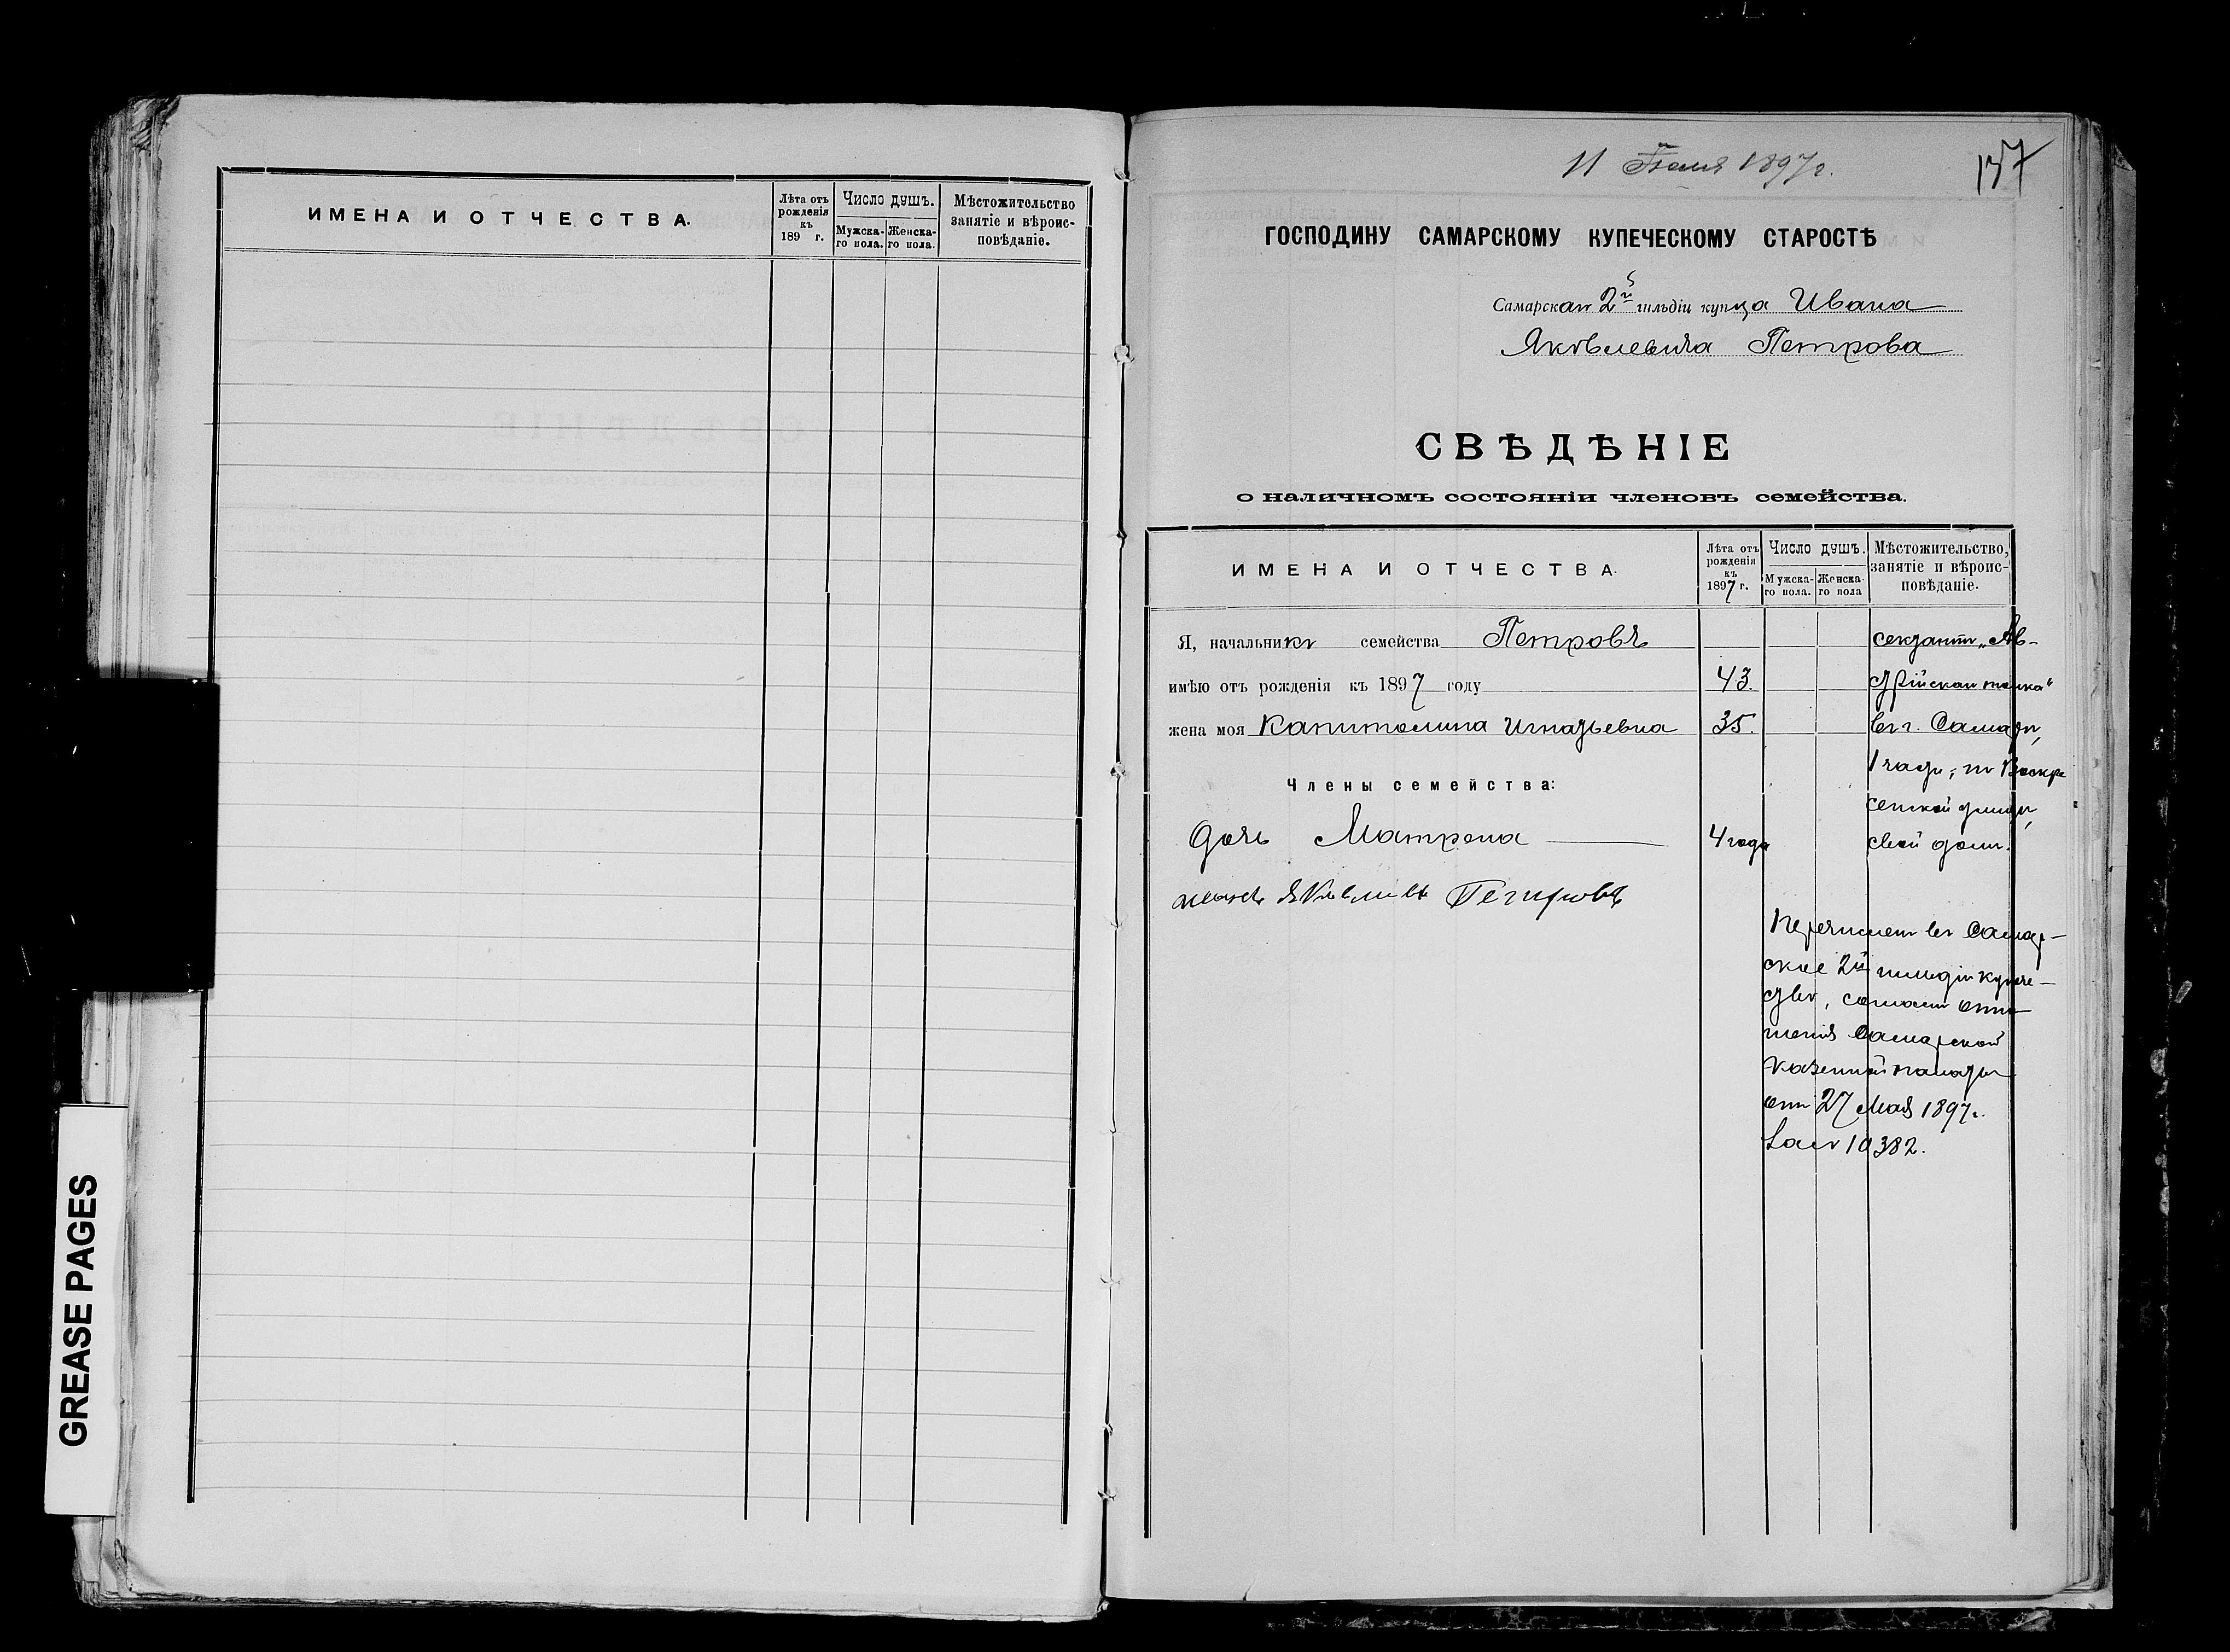 ИМЕНА И ОТЧЕСТВА.
Лѣта отъ рожденія къ 189 г.
Число душъ.
Мужска-го пола.
Женска-го пола.
Мѣстожительство занятіе и вѣроис-повѣданіе.
GREASE PAGES
11 Іюня 1897 г.
137
ГОСПОДИНУ САМАРСКОМУ КУПЕЧЕСКОМУ СТАРОСТѢ
Самарскаго 2й гильдіи купца Ивана
Яковлевича Петрова
СВѢДѢНІЕ
о наличномъ состояніи членовъ семейства.
ИМЕНА И ОТЧЕСТВА
Лѣта отъ рожденія къ 1897 г.
Число душъ.
Мужска-го пола.
Женска-го пола
Мѣстожительство, занятіе и вѣроис-повѣданіе.
Я, начальникъ семейства Петровъ
имѣю отъ рожденія къ 1897 году 43.
жена моя Капитолина Игнатьевна 35.
Члены семейства:
дочь Матрена 4 года
Яковлевъ Петровъ
сектантъ „Ав-
стрійскаго толка"
въ г. Самарѣ,
1 части, по Воскре
сенской улицѣ,
свой домъ.
Перечисленъ въ Самар-
ское 2й гильдіи купече-
ство, согласно отно
шенія Самарской
Казенной палаты
отъ 27 Мая 1897 г.
за № 10382.